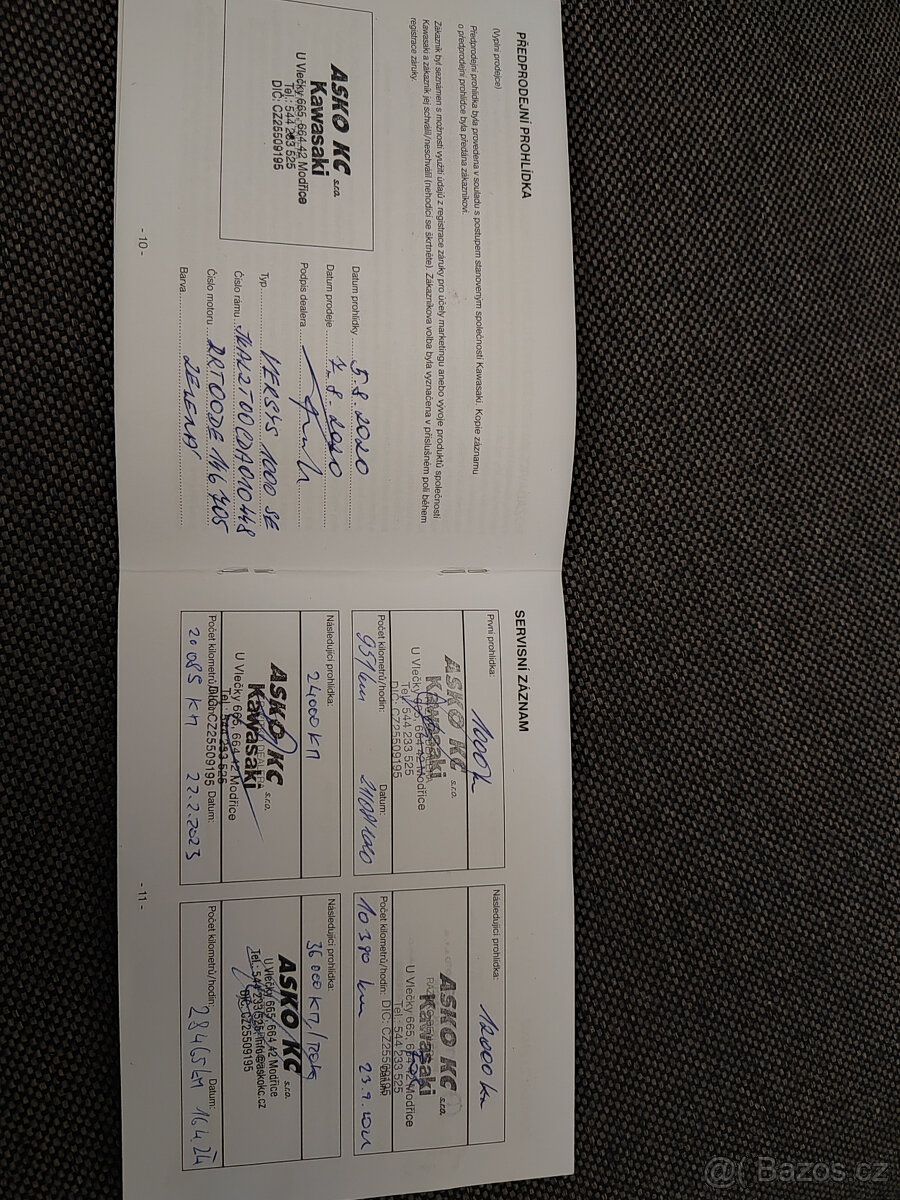 PŘEDPRODEJNÍ PROHLÍDKA
(Vyplní prodejce)
Předprodejní prohlídka byla provedena v souladu s postupem stanoveným společností Kawasaki. Kopie záznamu
o předprodejní prohlídce byla předána zákazníkovi.
Zákazník byl seznámen s možností využití údajů z registrace záruky pro účely marketingu anebo vývoje produktů společnosti
Kawasaki a zákazník jej schválil/neschválil (nehodící se škrtněte). Zákazníkova volba byla vyznačena v příslušném poli během
registrace záruky.
ASKO KC s.r.o.
Kawasaki
U Vlečky 665, 664 42 Modřice
Tel.: 544 233 525
DIČ: CZ25509195
Datum prohlídky 5.8.2020
Datum prodeje 7.8.2020
Podpis dealera
Typ VERSYS 1000 SE
Číslo rámu
Číslo motoru
Barva ZELENÁ
- 10 -
SERVISNÍ ZÁZNAM
První prohlídka: 1000
ASKO KC s.r.o.
Kawasaki
U Vlečky 665, 664 42 Modřice
Tel.: 544 233 525
DIČ: CZ25509195
Počet kilometrů/hodin: Datum:
951 km
Následující prohlídka: 12000 km
ASKO KC s.r.o.
Kawasaki
U Vlečky 665, 664 42 Modřice
Tel.: 544 233 525
DIČ: CZ25509195
Počet kilometrů/hodin: Datum:
10390 km
Následující prohlídka: 24000 KM
ASKO KC s.r.o.
Kawasaki
U Vlečky 665, 664 42 Modřice
Tel.: 544 233 525
DIČ: CZ25509195
Počet kilometrů/hodin: Datum:
20085 KM 22.2.2023
Následující prohlídka: 36000 KM/
ASKO KC s.r.o.
U Vlečky 665, 664 42 Modřice
Tel.: 544 233 525, info@askokc.cz
DIČ: CZ25509195
Počet kilometrů/hodin: Datum:
28465 KM 16.4.24
- 11 -
@( Bazos.cz